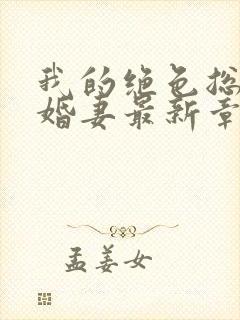 我的绝色总
婚妻最新章
孟姜女